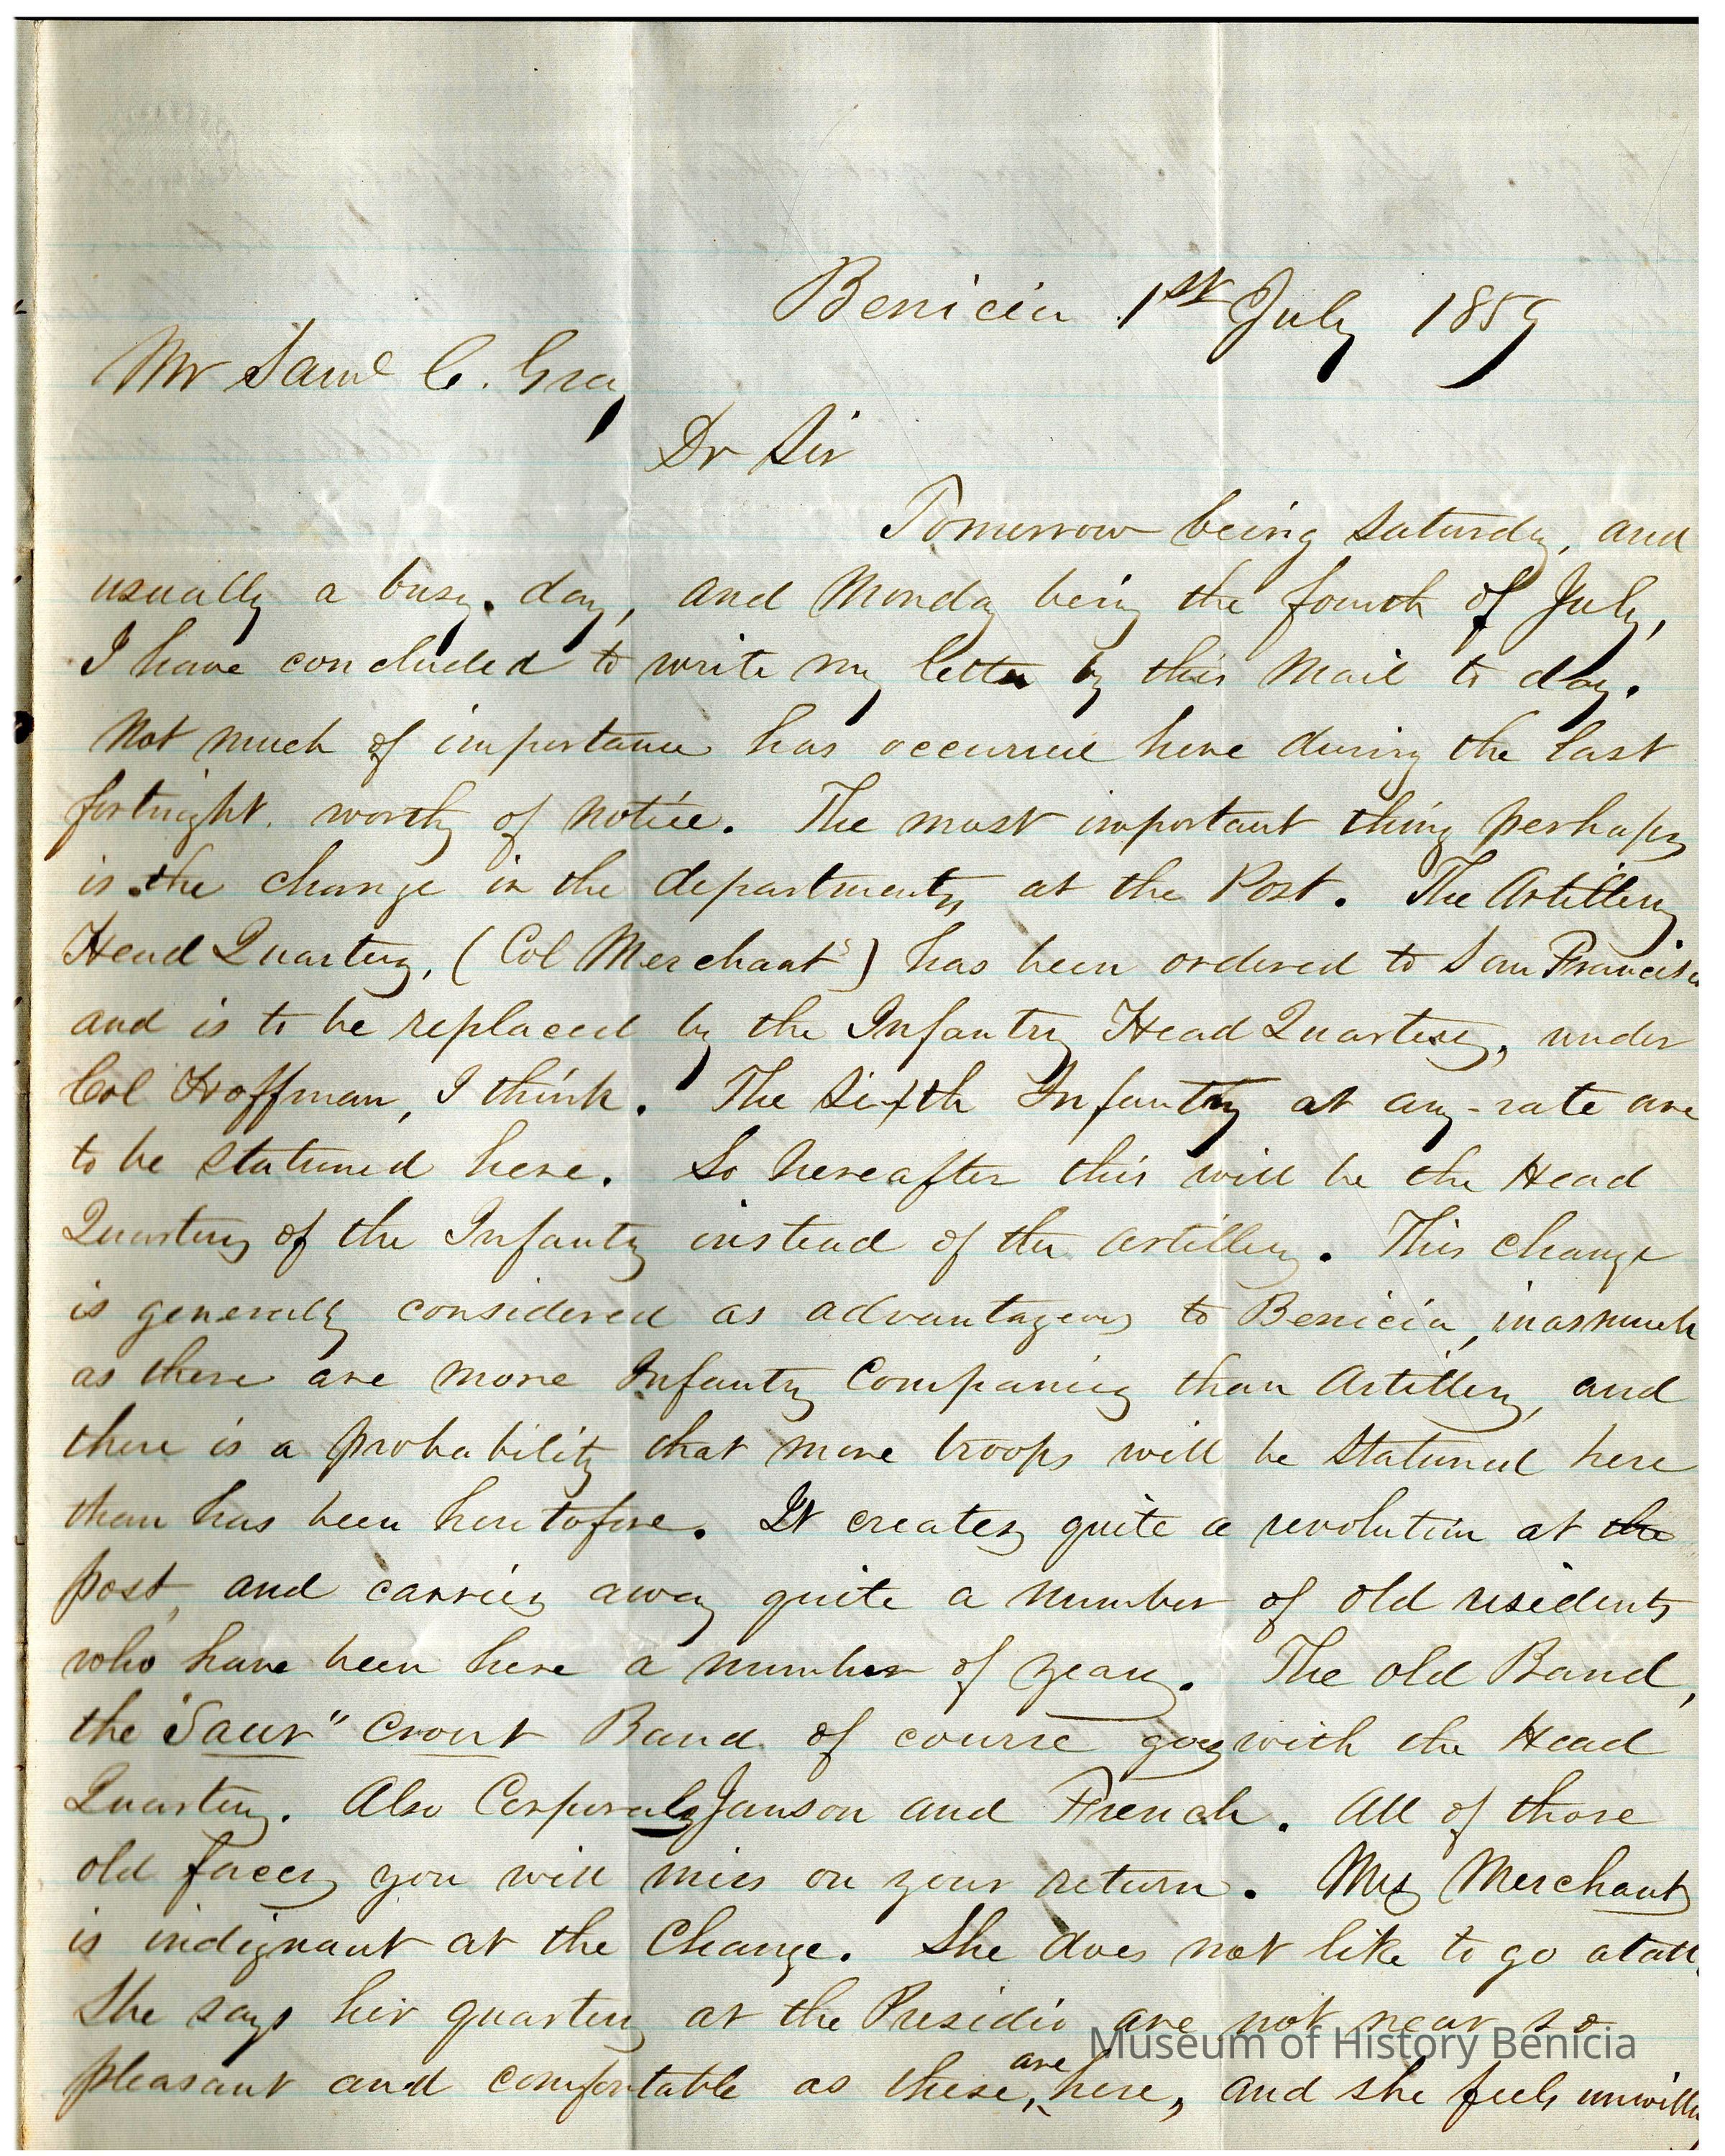 Benicia 1st July 1859
Mr Saml C. Gray
Dr Sir
Tomorrow being Saturday, and
usually a busy day, and Monday being the fourth of July,
I have concluded to write my letter by this Mail to day.
Not much of importance has occurred here during the last
fortnight. worthy of notice. The most important thing perhaps
is the change in the departments, at the Post. The Artillery
Head Quarters, (Col Merchant's) has been ordered to San Francisco
and is to be replaced by the Infantry Head Quarters, under
Col Hoffman, I think. The Sixth Infantry at any-rate are
to be stationed here. So hereafter this will be the Head
Quarters of the Infantry instead of the artillery. This change
is generally considered as advantageous to Benicia, inasmuch
as there are more Infantry Companies than Artillery, and
there is a probability that more troops will be stationed here
than has been heretofore. It creates quite a revolution at the
post, and carries away quite a number of old residents
who have been here a number of years. The old Band,
the "Saur" Crout Band of course goes with the Head
Quarters. Also Corporals Janson and French. All of those
old faces you will miss on your return. Mrs Merchant
is indignant at the Change. She does not like to go at all.
She says her quarters at the Presidio are not near so
pleasant and comfortable as these, are here, and she feels unwilling
Museum of History Benicia